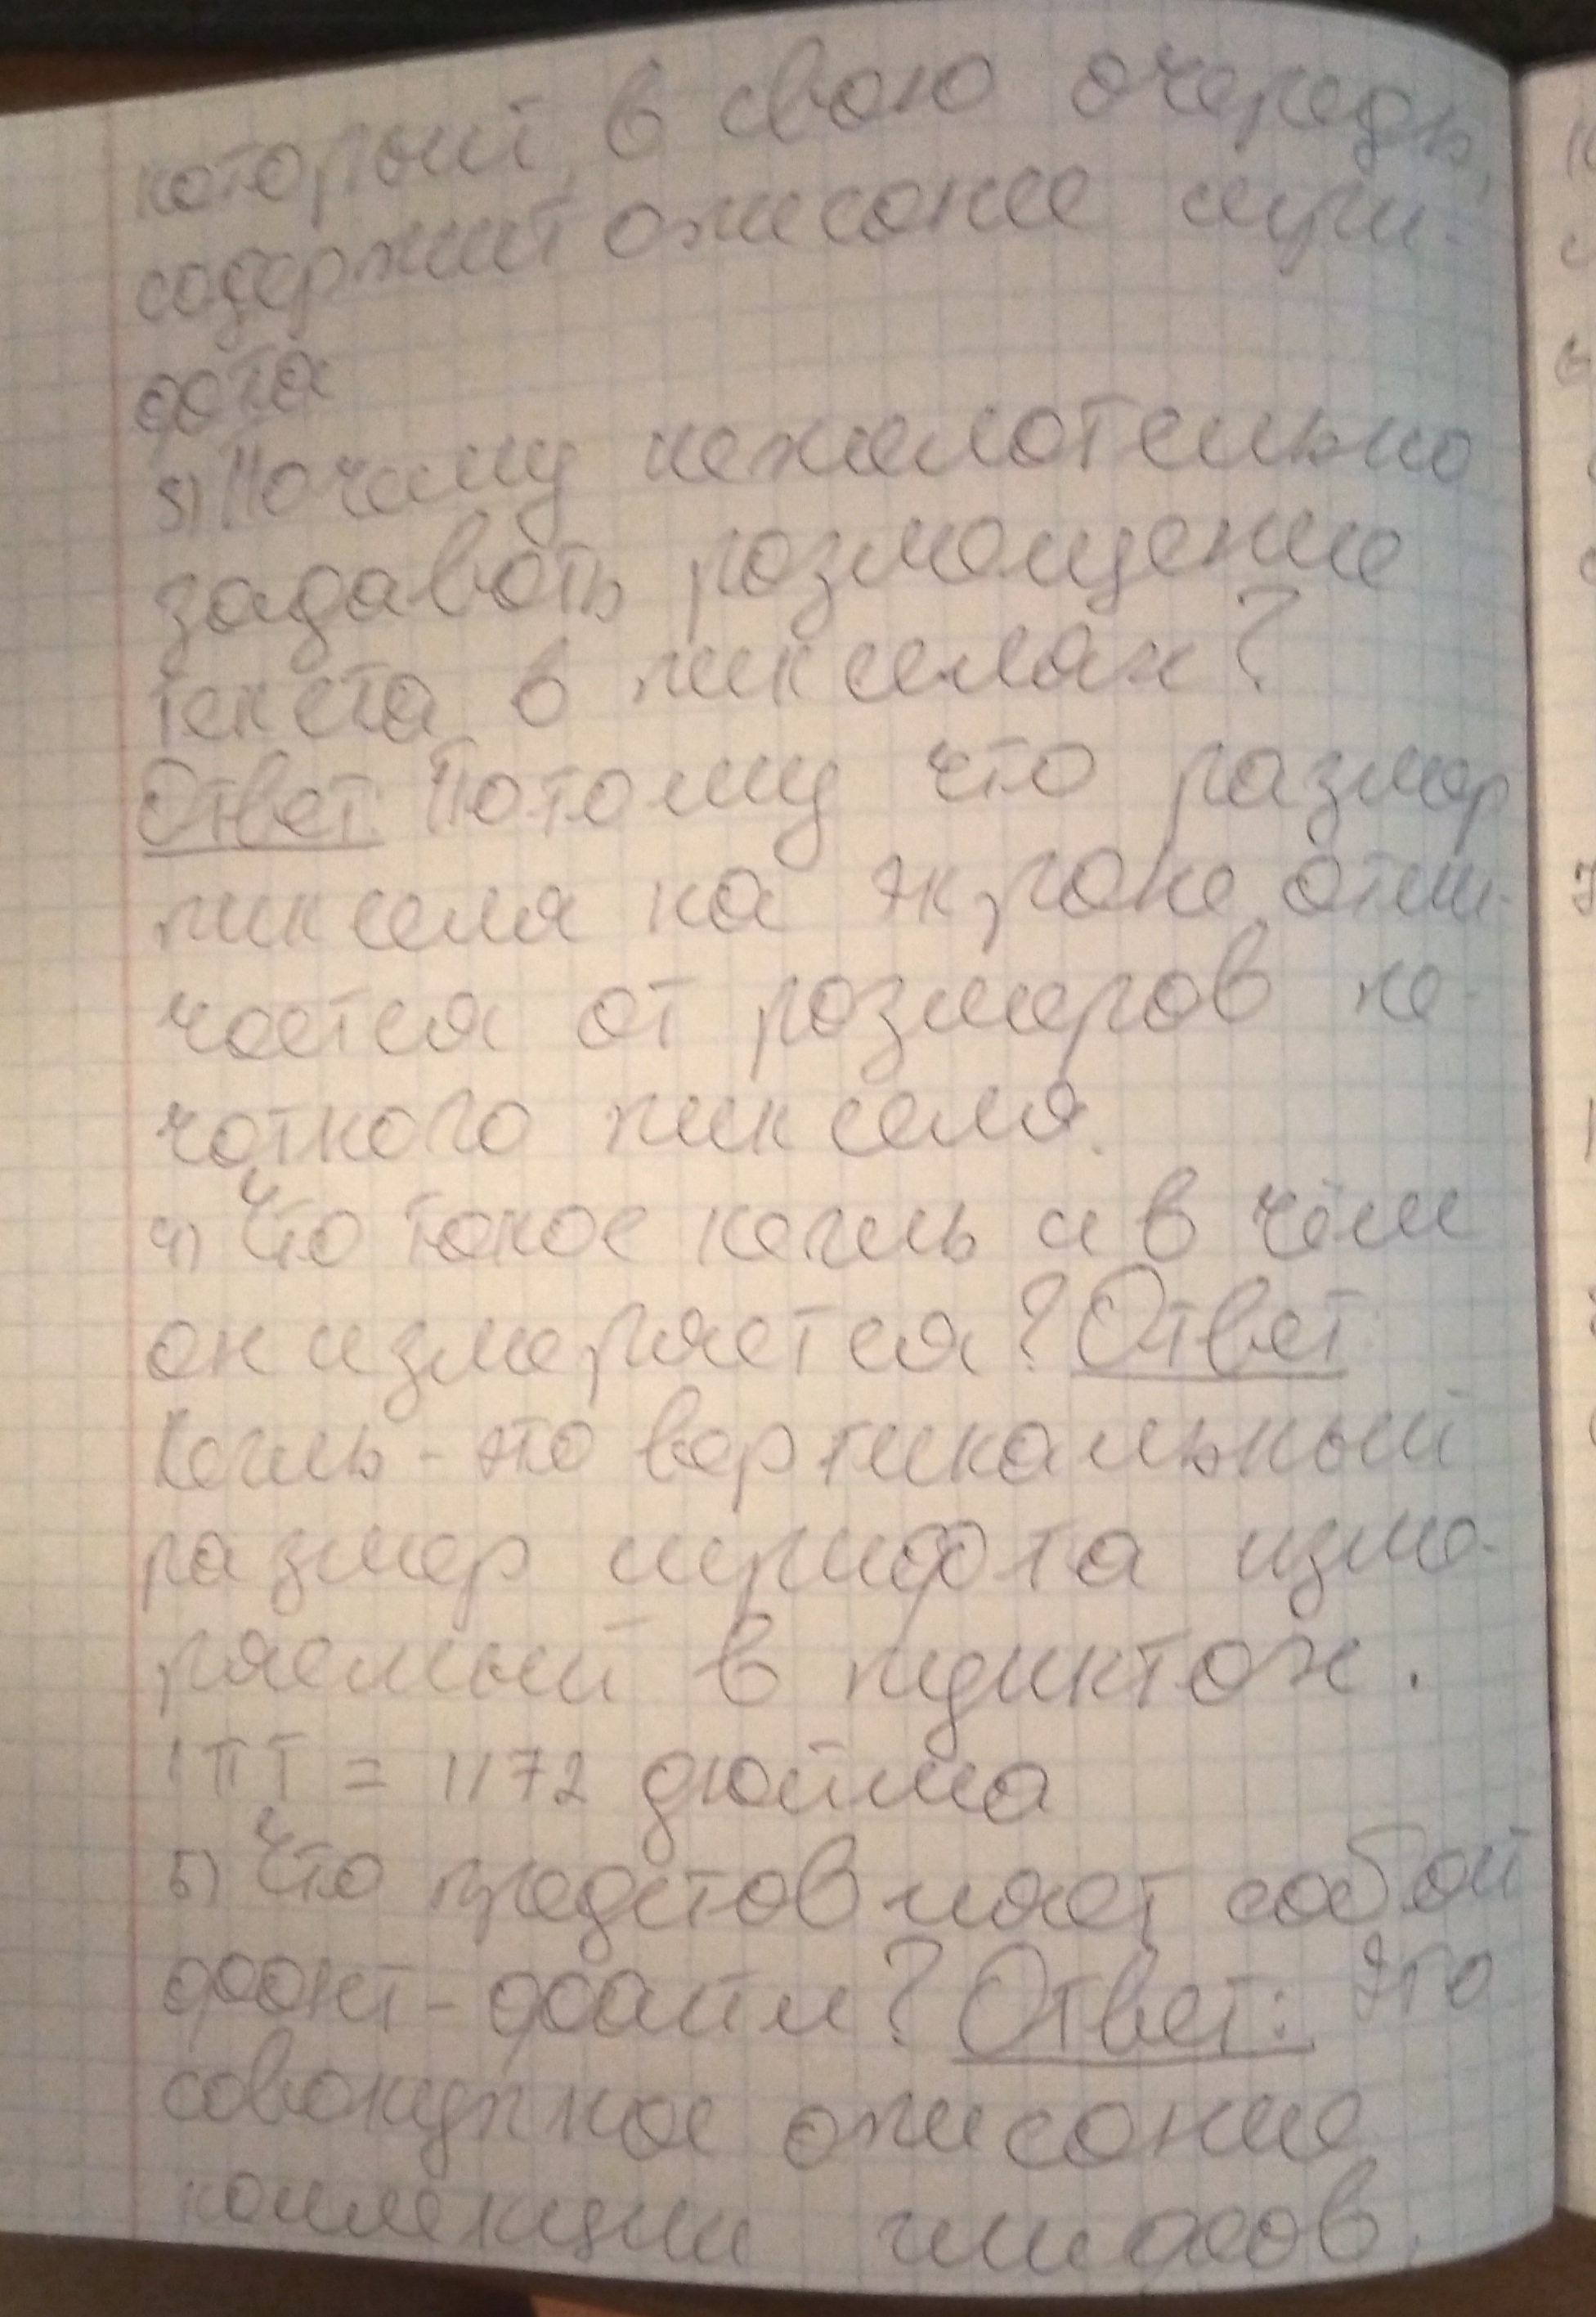 который, в свою очередь,
содержит описание шри-
фта
3) Почему нежелательно
задавать размещение
текста в пикселях?
Ответ: Потому что размер
пикселя на экране отли-
чается от размеров пе-
чатного пикселя.
4) Что такое кегль и в чём
он измеряется? Ответ:
Кегль - это вертикальный
размер шрифта изме-
ряемый в пунктах.
1 ПТ = 1/72 дюйма
5) Что представляет собой
фонт-файл? Ответ: Это
совокупное описание
коллекции глифов,